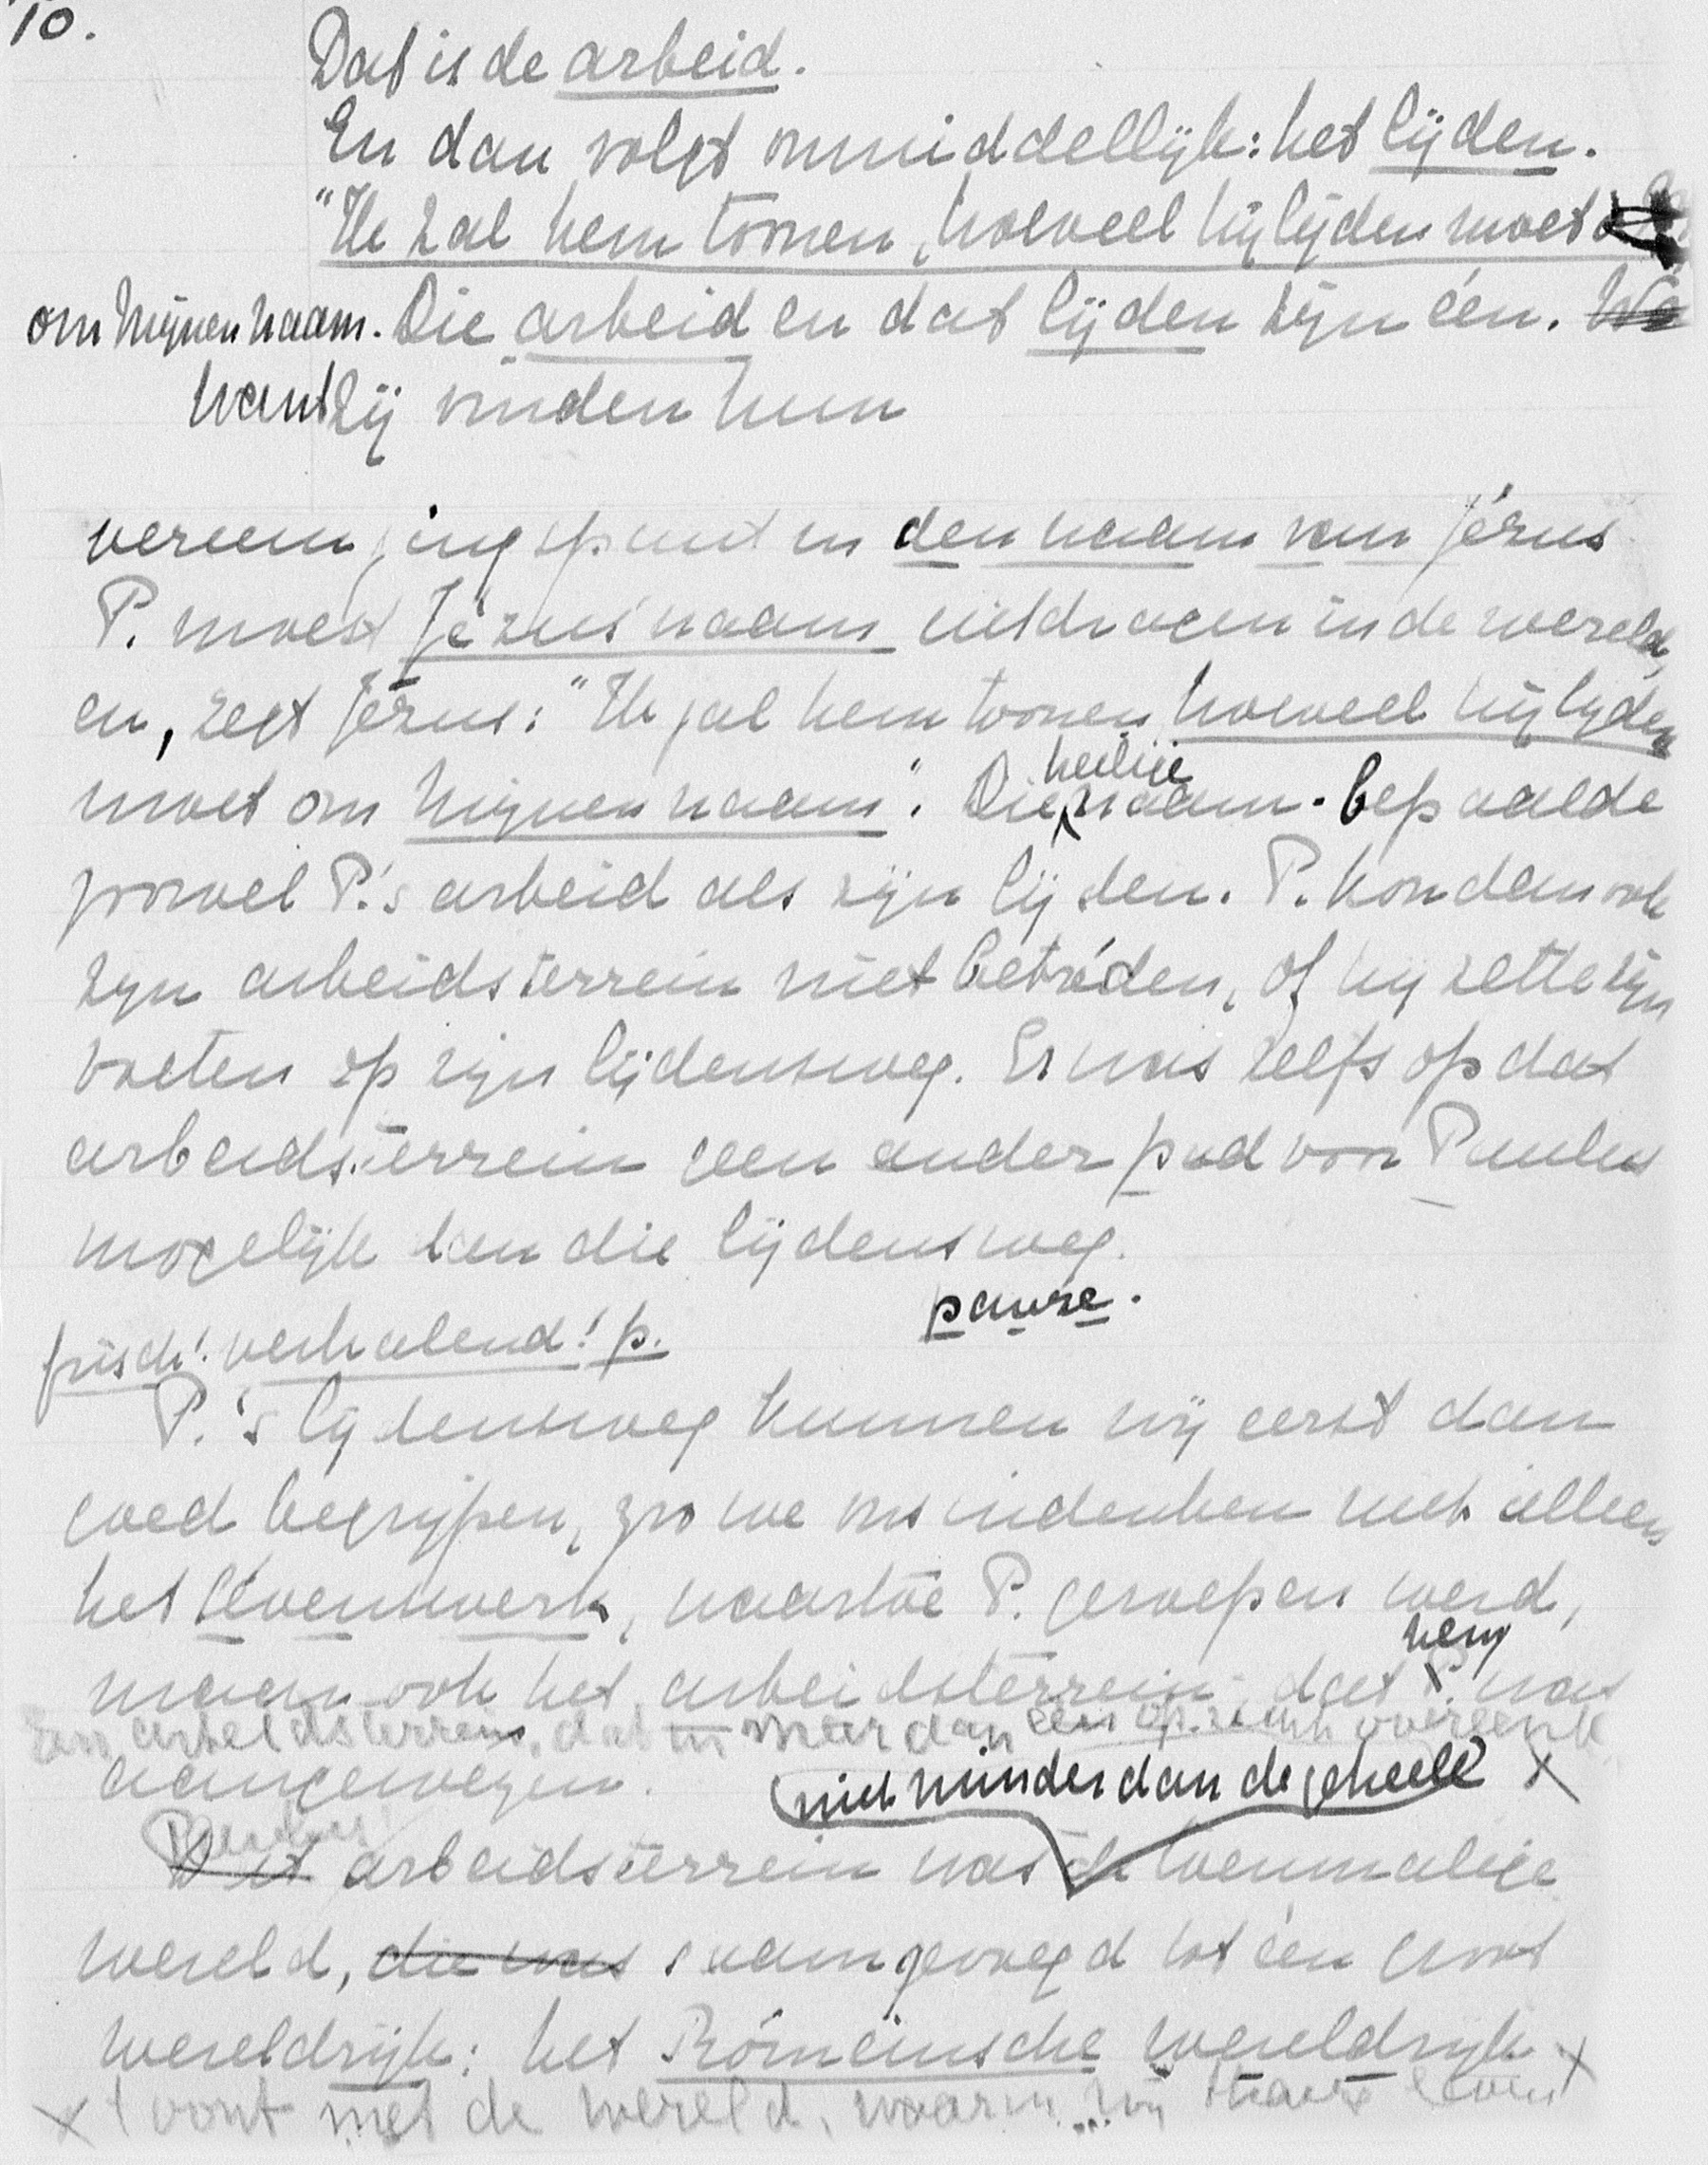 10.
Dat is de arbeid.
En dan volgt onmiddellijk: het lijden.
"Ik zal hem toonen, hoeveel hij lijden moet
om Mijnen naam. Die arbeid en dat lijden zijn één. Wa
want zij vinden hun
vereenigingspunt in den naam van Jézus
P. moest Jézus' naam uitdragen in de wereld,
en, zegt Jézus: "Ik zal hem toonen hoeveel hij lijden
moet om Mijnen naam". Die heilige naam bepaalde
zoowel P.'s arbeid als zijn lijden. P. kon dan ook
zijn arbeidsterrein niet betréden, of hij zette zijn
voeten op zijn lijdensweg. Er was zelfs op dat
arbeidsterrein geen ander pad voor Paulus
mogelijk dan die lijdensweg.
pauze.
frisch! verhalend! p.
P.'s lijdensweg kunnen wij eerst dan
goed begrijpen, zoo we ons indenken niet alleen
het lévenswerk, waartoe P. geroepen werd,
maar ook het arbeidsterrein, dat P. hem was
een arbeidsterrein, dat in meer dan een opzicht overeenk
aangewezen. niet minder dan de geheele x
Paulus
Dit arbeidsterrein was de toenmalige
wereld, die was saamgevoegd tot één groot
wereldrijk: het Rómeinsche wereldrijk x
x t vont met de wereld, waarin wij thans leven x